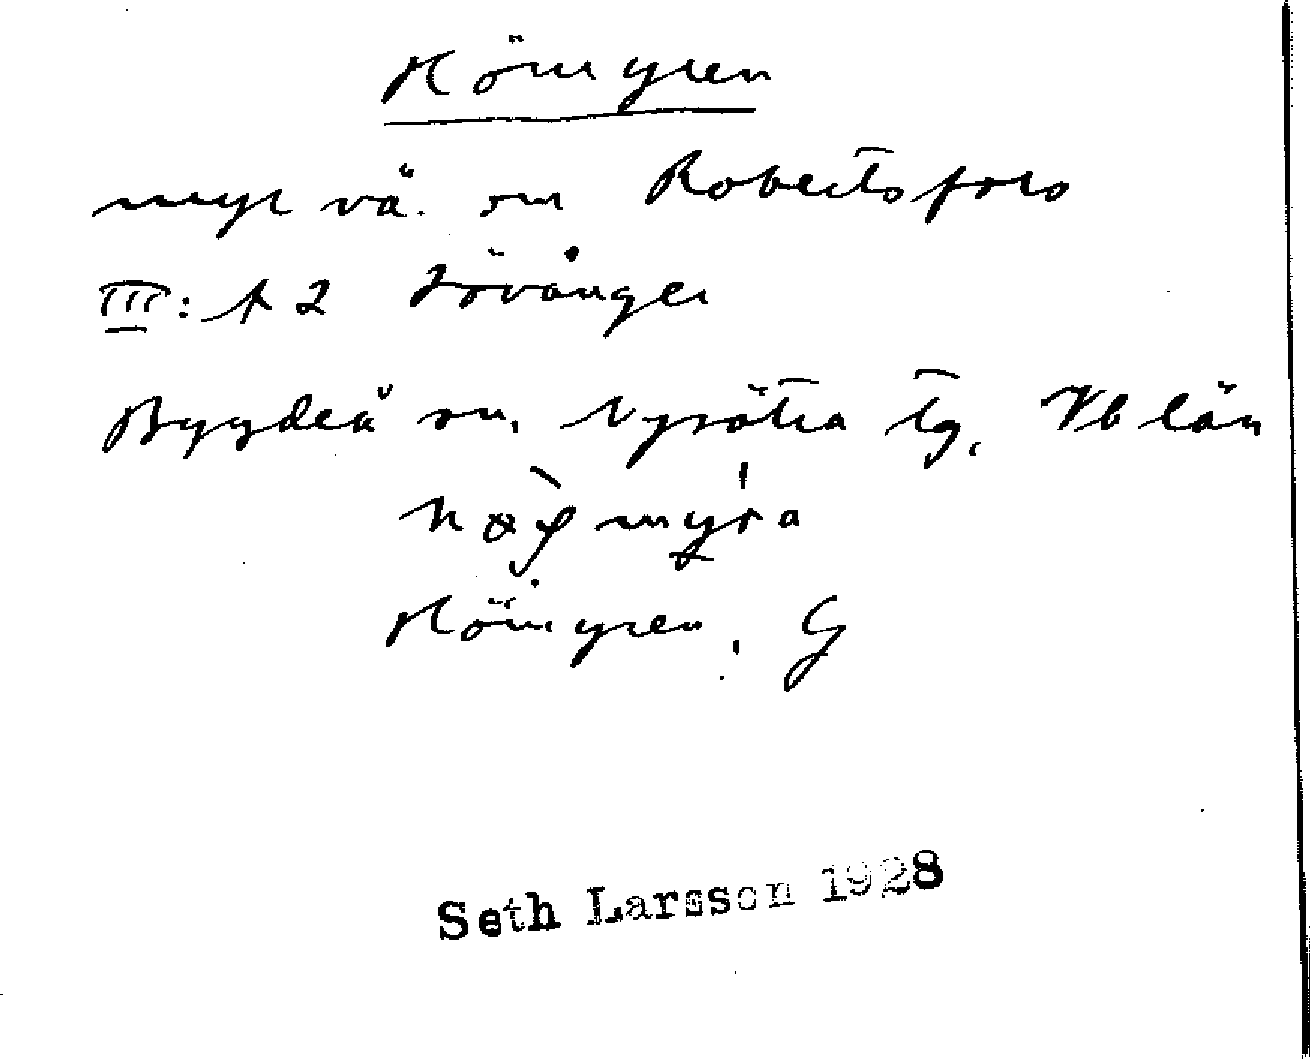 Hömyren
myr vä. om Robertsfors
III: A 2 Lövånger
Bygdeå sn, Nysätra tg, Vb län
Hömyren, G
Seth Larsson 1928